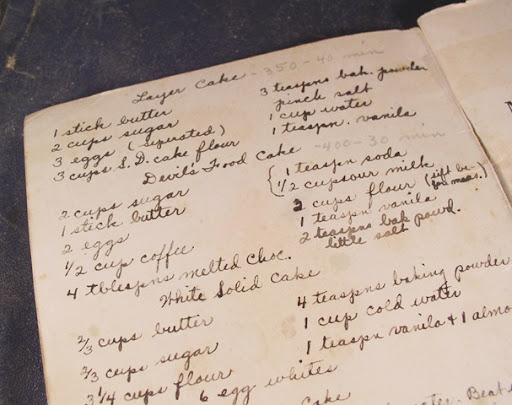 Layer Cake - 350 - 40 min
1 stick butter
2 cups sugar
3 eggs (seperated)
3 cups S.D. cake flour
3 teaspns bak. powder
pinch salt
1 cup water
1 teaspn. vanila
Devil's Food Cake - 400 - 30 min
2 cups sugar
1 stick butter
2 eggs
1/2 cup coffee
4 tblespns melted choc.
1 teaspn soda
1/2 cup sour milk
2 cups flour (sift be-
fore meas.)
1 teaspn vanila
2 teaspns bak powd.
little salt
White Solid Cake
2/3 cups butter
2/3 cups sugar
3 1/4 cups flour
6 egg whites
4 teaspns baking powder
1 cup cold water
1 teaspn vanila & 1 almo
Cake
water. Beat